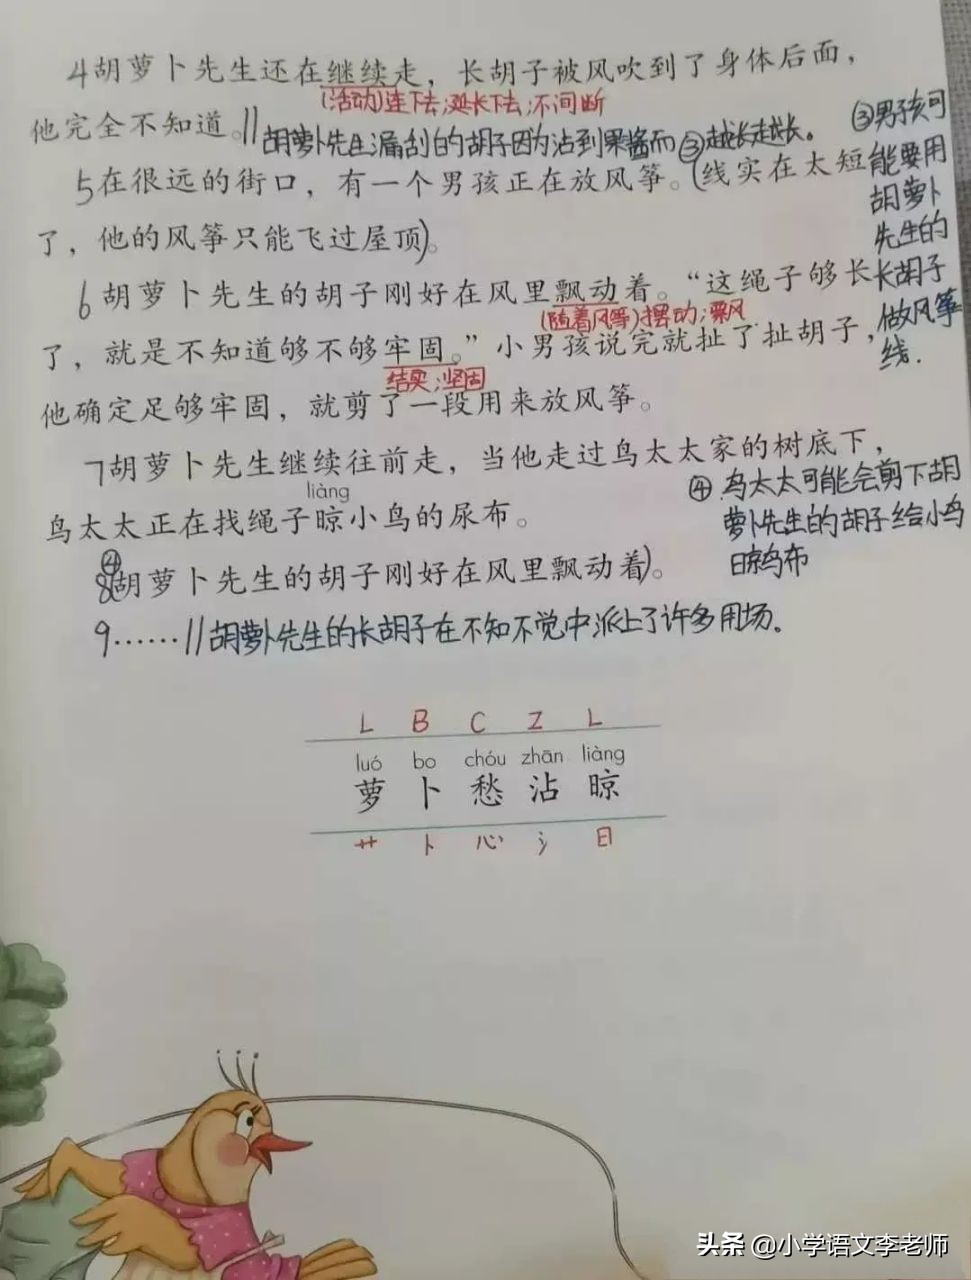 4胡萝卜先生还在继续走，长胡子被风吹到了身体后面，
(活动)连下去;延长下去;不间断
他完全不知道。||胡萝卜先生漏刮的胡子因为沾到果酱而②越长越长。
5在很远的街口，有一个男孩正在放风筝。(线实在太短
了，他的风筝只能飞过屋顶)。
③男孩可
能要用
胡萝卜
先生的
长胡子
做风筝
线.
6胡萝卜先生的胡子刚好在风里飘动着。“这绳子够长
(随着风等)摆动;飘
了，就是不知道够不够牢固。”小男孩说完就扯了扯胡子，
结实;坚固
他确定足够牢固，就剪了一段用来放风筝。
7胡萝卜先生继续往前走，当他走过鸟太太家的树底下，
liàng
鸟太太正在找绳子晾小鸟的尿布。
④鸟太太可能会剪下胡
萝卜先生的胡子给小鸟
晾鸟布
④
8胡萝卜先生的胡子刚好在风里飘动着)。
9……||胡萝卜先生的长胡子在不知不觉中派上了许多用场。
L B C Z L
luó bo chóu zhān liàng
萝 卜 愁 沾 晾
艹 卜 心 氵 日
头条 @小学语文李老师